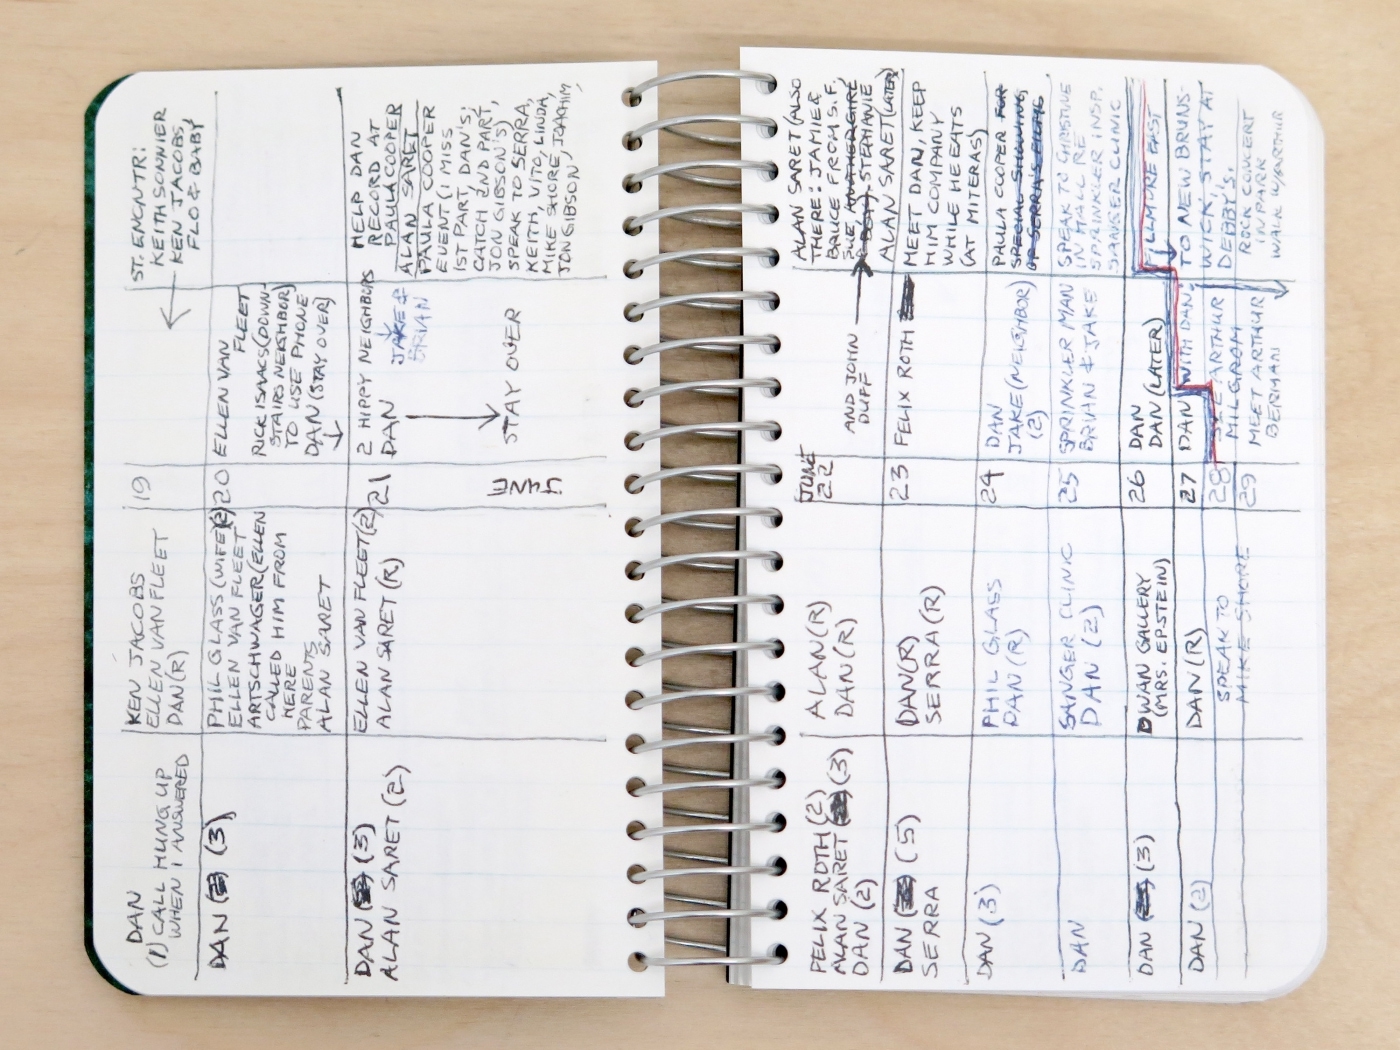 DAN
(1) CALL HUNG UP
WHEN I ANSWERED
KEN JACOBS
ELLEN VAN FLEET
DAN (R)
19
ST. ENCNTR:
KEITH SONNIER
KEN JACOBS,
FLO & BABY
DAN (3)
PHIL GLASS (WIFE)(2)
ELLEN VAN FLEET
ARTSCHWAGER (ELLEN
CALLED HIM FROM
HERE
PARENTS
ALAN SARET
20
ELLEN VAN
FLEET
RICK ISAACS (DOWN-
STAIRS NEIGHBOR)
TO USE PHONE
DAN (STAY OVER)
DAN (3)
ALAN SARET (2)
ELLEN VAN FLEET (2)
ALAN SARET (R)
21
2 HIPPY NEIGHBORS
JAKE &
BRIAN
DAN
STAY OVER
HELP DAN
RECORD AT
PAULA COOPER
ALAN SARET
PAULA COOPER
EVENT (I MISS
1ST PART, DAN'S;
CATCH 2ND PART,
JON GIBSON'S)
SPEAK TO SERRA,
KEITH, VITO, LINDA,
MIKE SHORE, JOACHIM,
JON GIBSON,
FELIX ROTH (2)
ALAN SARET (3)
DAN (2)
ALAN (R)
DAN (R)
JUNE
22
AND JOHN
DUFF
ALAN SARET (ALSO
THERE: JAMIE &
BRUCE FROM S.F.,
SUE, ANOTHER GIRL
STEPHANIE
ALAN SARET (LATER)
DAN (5)
SERRA
DAN (R)
SERRA (R)
23
FELIX ROTH
MEET DAN, KEEP
HIM COMPANY
WHILE HE EATS
(AT MITERAS)
DAN (3)
PHIL GLASS
DAN (R)
24
DAN
JAKE (NEIGHBOR)
(2)
PAULA COOPER FOR
SPECIAL SHOWING
OF SERRA'S PIECE
DAN
SANGER CLINIC
DAN (2)
25
SPRINKLER MAN
BRIAN & JAKE
SPEAK TO CHRISTINE
IN HALL RE
SPRINKLER INSP.
SANGER CLINIC
DAN (3)
DWAN GALLERY
(MRS. EPSTEIN)
26
DAN
DAN (LATER)
FILLMORE EAST
DAN (2)
DAN (R)
27
DAN
WITH DAN
TO NEW BRUNS-
WICK, STAY AT
DEBBY'S.
SPEAK TO
MIKE SHORE
28
SEE ARTHUR
MILGROM
ROCK CONCERT
IN PARK
WALK W/ARTHUR
29
MEET ARTHUR
BERMAN